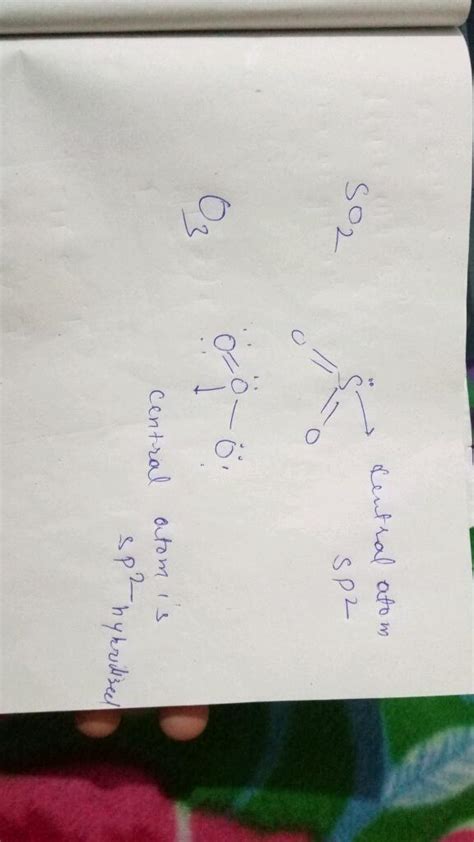 SO2
S
O
O
central atom
sp2
O3
O=O-O
central atom is
sp2-hybridized